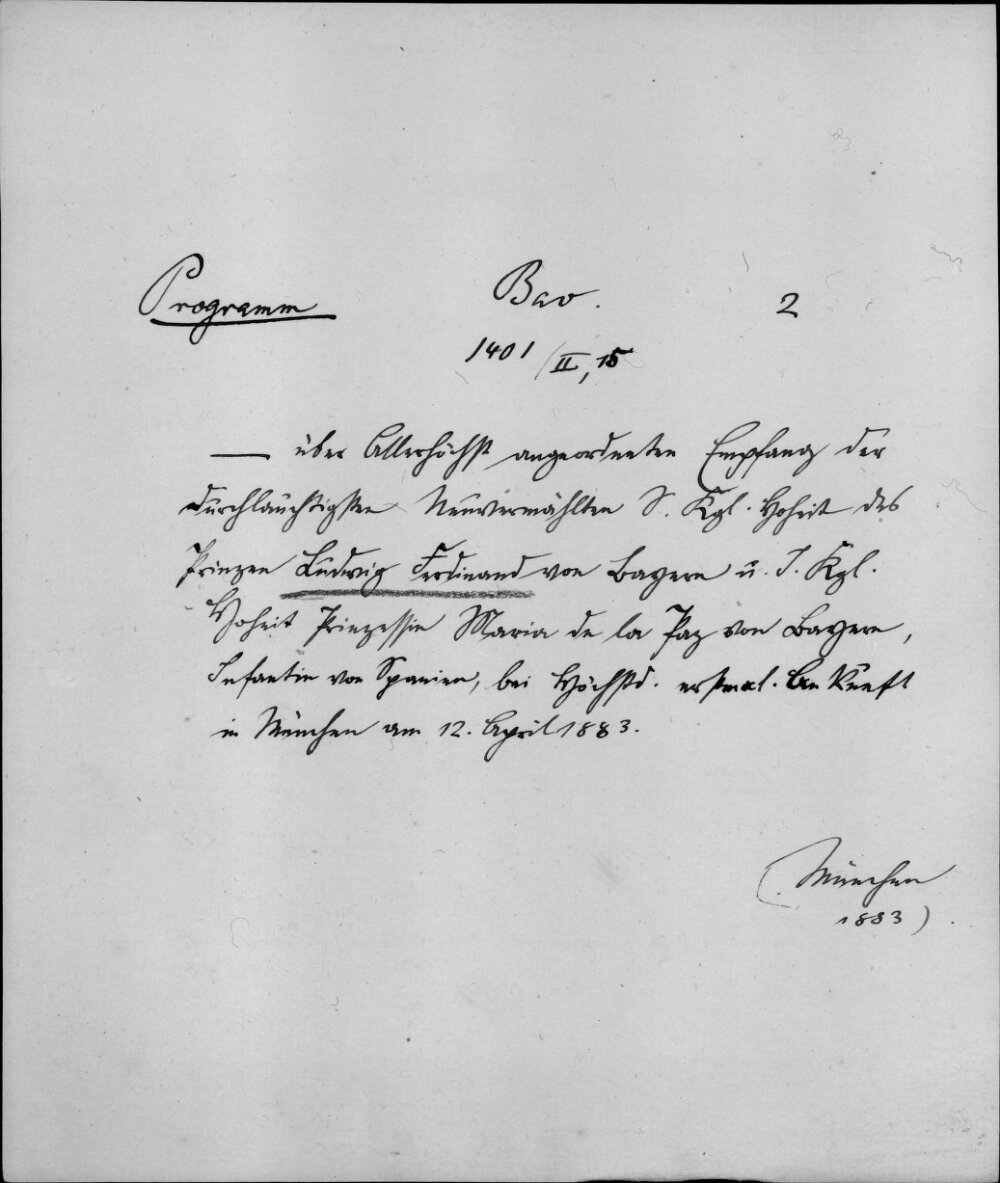 Programm Bav. 2
1401/II,15
— über Allerhöchst angeordneten Empfang der
durchlauchtigsten Neuvermählten S. Kgl. Hoheit des
Prinzen Ludwig Ferdinand von Bayern u. I. Kgl.
Hoheit Prinzessin Maria de la Paz von Bayern,
Infantin von Spanien, bei Höchstd. erstmal. Ankunft
in München am 12. April 1883.
(München
1883).